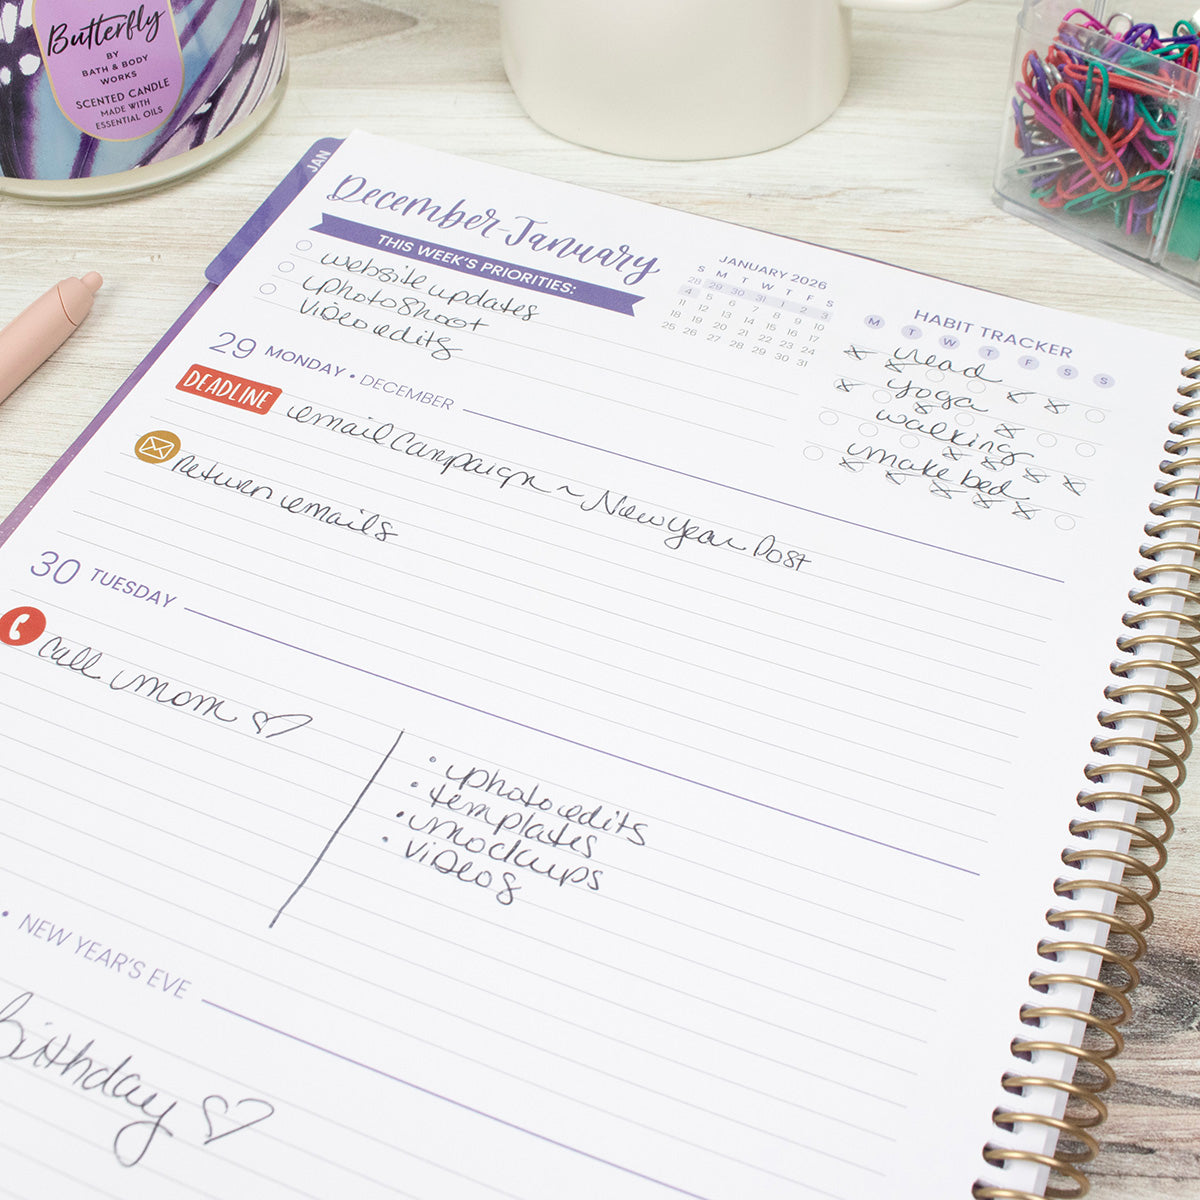 Butterfly
BY
BATH & BODY
WORKS
SCENTED CANDLE
MADE WITH
ESSENTIAL OILS
JAN
December-January
THIS WEEK'S PRIORITIES:
website updates
photoshoot
video edits
JANUARY 2026
S M T W T F S
28 29 30 31 1 2 3
4 5 6 7 8 9 10
11 12 13 14 15 16 17
18 19 20 21 22 23 24
25 26 27 28 29 30 31
HABIT TRACKER
M T W T F S S
read
yoga
walking
make bed
29 MONDAY • DECEMBER
DEADLINE email campaign ~ New Year Post
Return emails
30 TUESDAY
call mom
• photo edits
• templates
• mockups
• videos
• NEW YEAR'S EVE
birthday